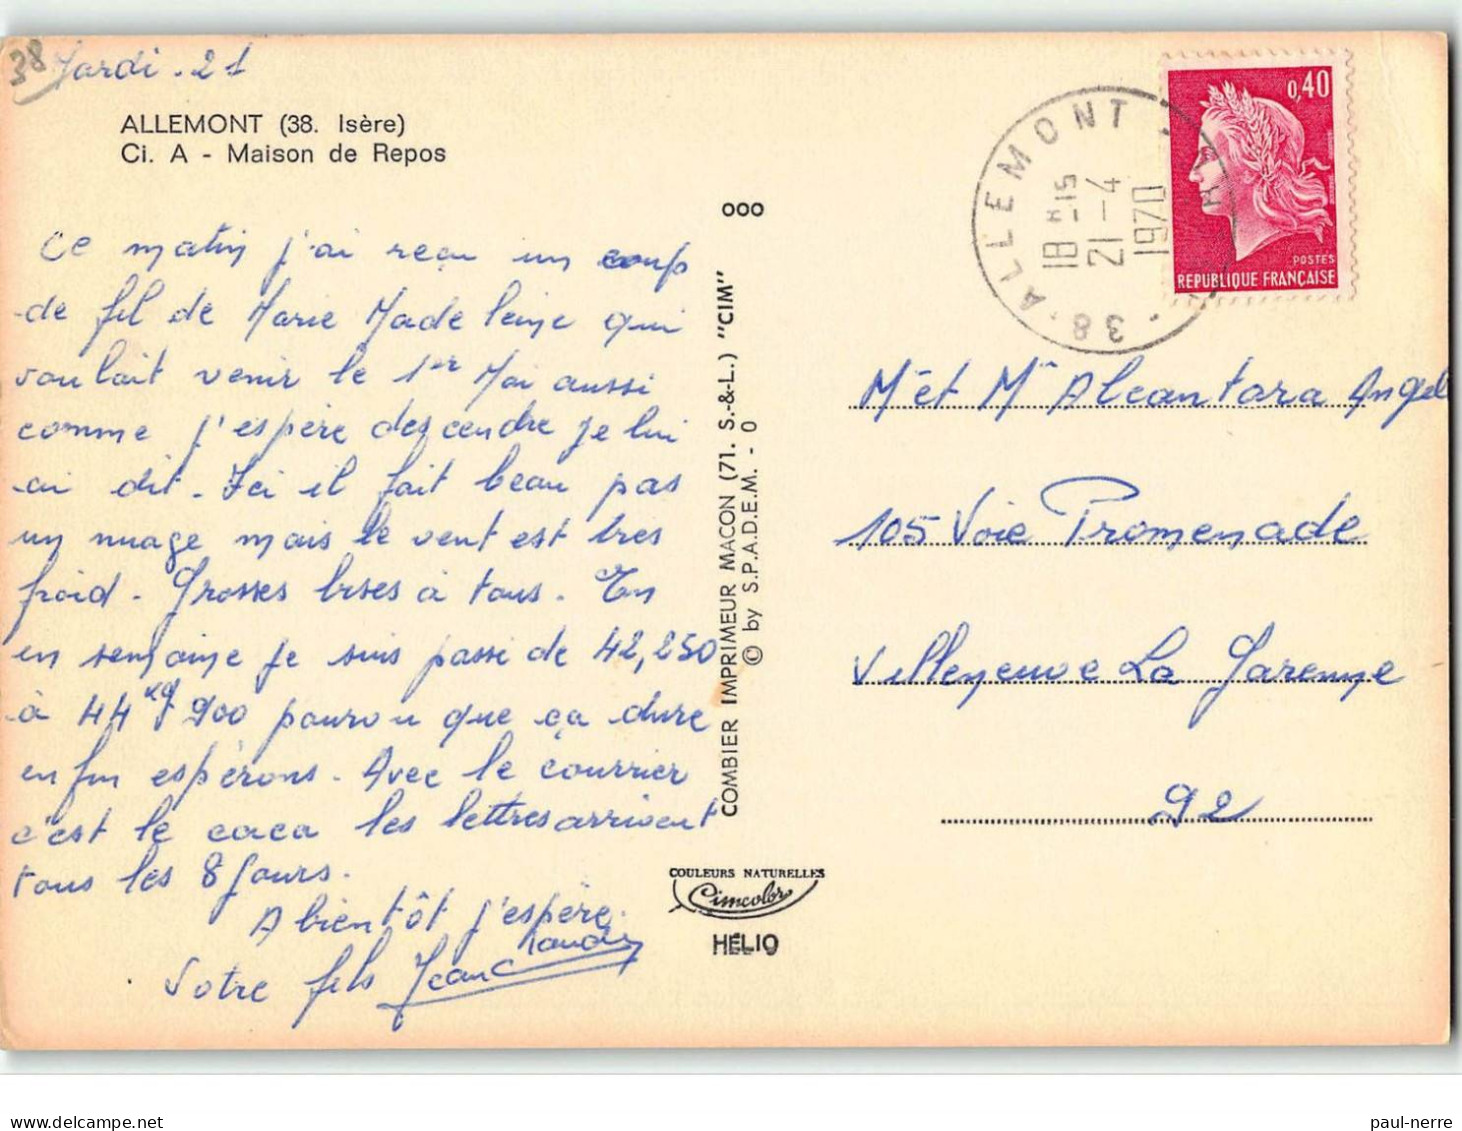 38
Mardi. 21
ALLEMONT (38. Isère)
Ci. A - Maison de Repos
Ce matin j'ai reçu un coup
de fil de Marie Madeleine qui
voulait venir le 1er Mai aussi
comme j'espère descendre je lui
ai dit. Ici il fait beau pas
un nuage mais le vent est tres
froid. Grosses bises à tous. En
en semaine je suis passé de 42,250
à 44kg900 pourvou que ça dure
enfin espérons. Avec le courrier
c'est le caca les lettres arrivent
tous les 8 jours.
A bientôt j'espère.
Votre fils Jean Claude
000
COMBIER IMPRIMEUR MACON (71. S.-&-L.) "CIM"
© by S.P.A.D.E.M. - 0
COULEURS NATURELLES
Cimcolor
HÉLIO
ALLEMONT
38
18H-15
21-4
1970
0,40
POSTES
REPUBLIQUE FRANÇAISE
Mr et Me Alcantara Angel
105 Voie Promenade
Villeneuve La Garenne
92
paul-nerre